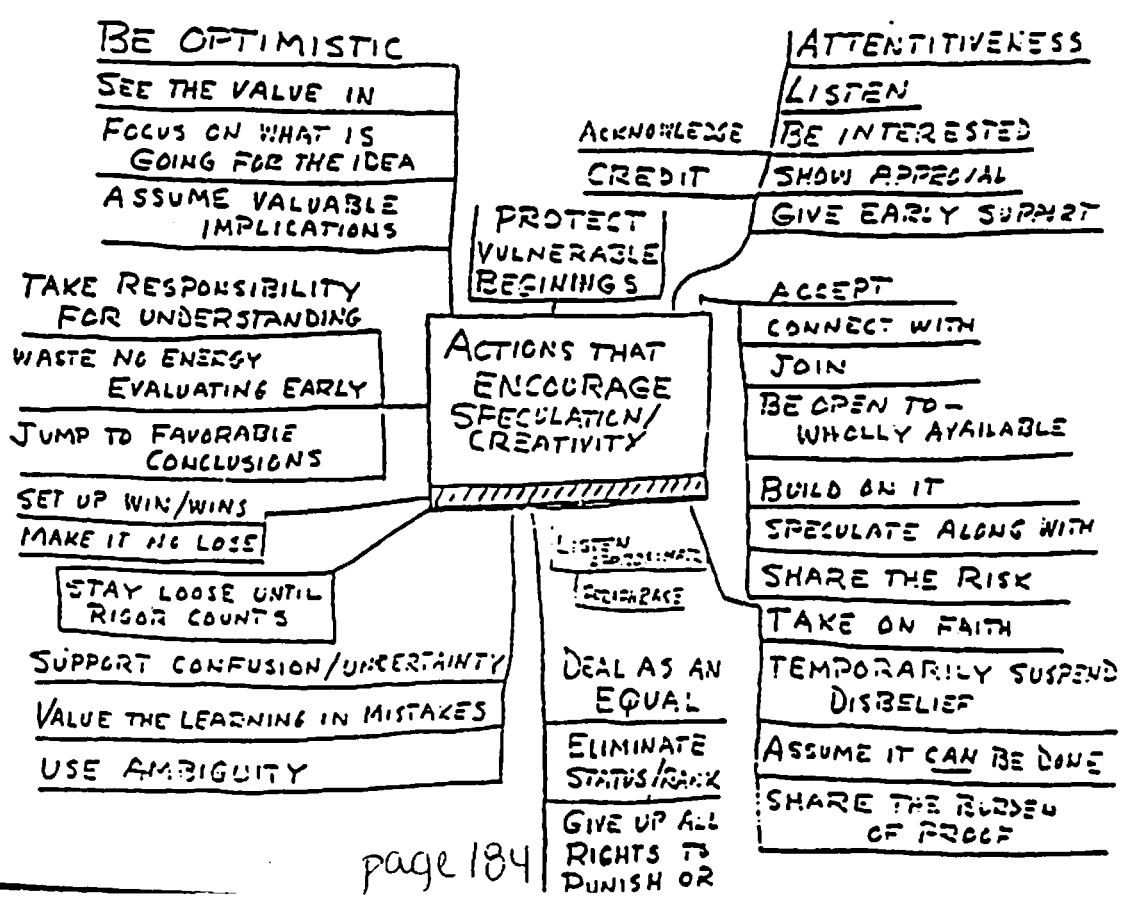 BE OPTIMISTIC
SEE THE VALUE IN
FOCUS ON WHAT IS
GOING FOR THE IDEA
ASSUME VALUABLE
IMPLICATIONS
TAKE RESPONSIBILITY
FOR UNDERSTANDING
WASTE NO ENERGY
EVALUATING EARLY
JUMP TO FAVORABLE
CONCLUSIONS
SET UP WIN/WINS
MAKE IT NO LOSE
STAY LOOSE UNTIL
RIGOR COUNTS
SUPPORT CONFUSION/UNCERTAINTY
VALUE THE LEARNING IN MISTAKES
USE AMBIGUITY
PROTECT
VULNERABLE
BEGININGS
ACTIONS THAT
ENCOURAGE
SPECULATION/
CREATIVITY
LISTEN
DEAL AS AN
EQUAL
ELIMINATE
STATUS/RANK
GIVE UP ALL
RIGHTS TO
PUNISH OR
page 184
ATTENTITIVENESS
LISTEN
ACKNOWLEDGE
BE INTERESTED
CREDIT
SHOW
GIVE EARLY SUPPORT
ACCEPT
CONNECT WITH
JOIN
BE OPEN TO -
WHOLLY AVAILABLE
BUILD ON IT
SPECULATE ALONG WITH
SHARE THE RISK
TAKE ON FAITH
TEMPORARILY SUSPEND
DISBELIEF
ASSUME IT CAN BE DONE
SHARE THE BURDEN
OF PROOF